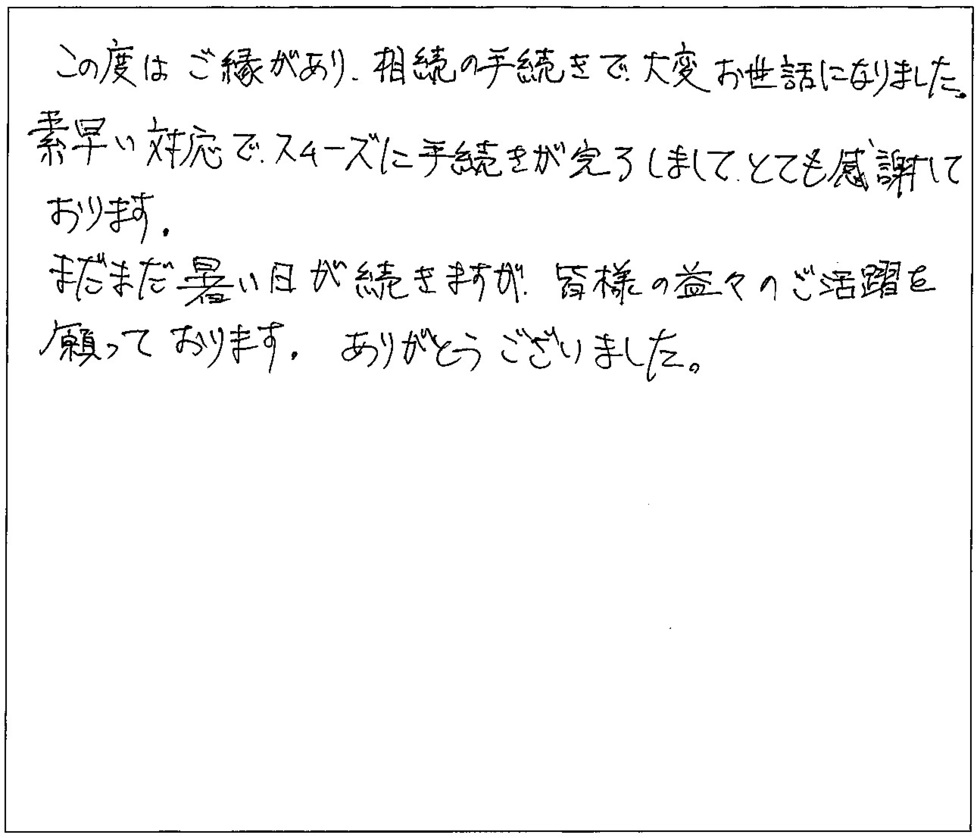 この度はご縁があり、相続の手続きで、大変お世話になりました。
素早い対応で、スムーズに手続きが完了しまして、とても感謝して
おります。
まだまだ暑い日が続きますが、皆様の益々のご活躍を
願っております。ありがとうございました。